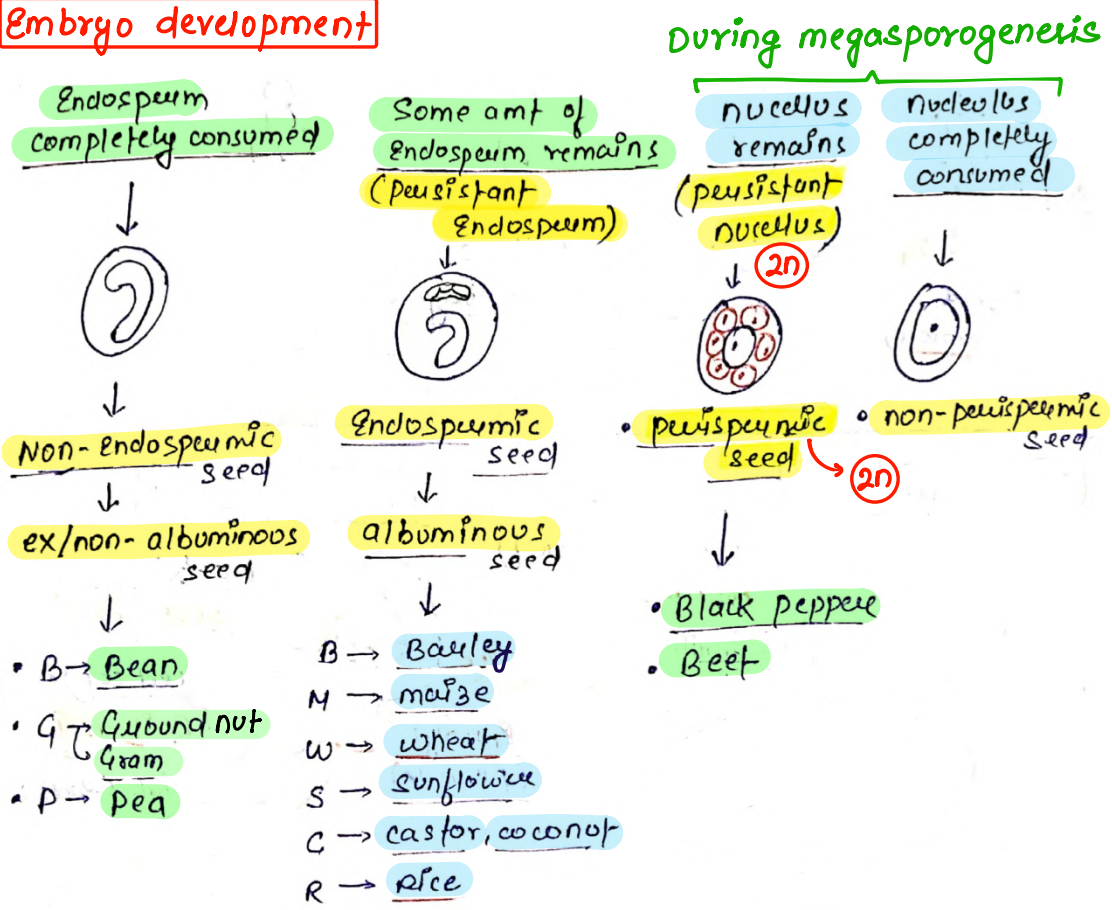 Embryo development
During megasporogenesis
Endosperm
completely consumed
Non-Endospermic
seed
ex/non-albuminous
seed
• B → Bean
• G → Ground nut
Gram
• P → Pea
Some amt of
Endosperm remains
(persistant
Endosperm)
Endospermic
seed
albuminous
seed
B → Barley
M → maize
W → wheat
S → sunflower
C → castor, coconut
R → Rice
nucellus
remains
(persistant
nucellus)
2n
• perispermic
seed
2n
• Black pepper
• Beet
nucleolus
completely
consumed
• non-perispermic
seed